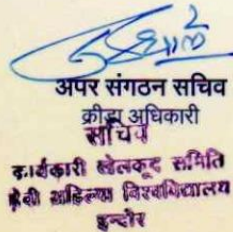 अपर संगठन सचिव
क्रीड़ा अधिकारी
सचिव
कार्यकारी खेलकूद समिति
देवी अहिल्या विश्वविद्यालय
इन्दौर